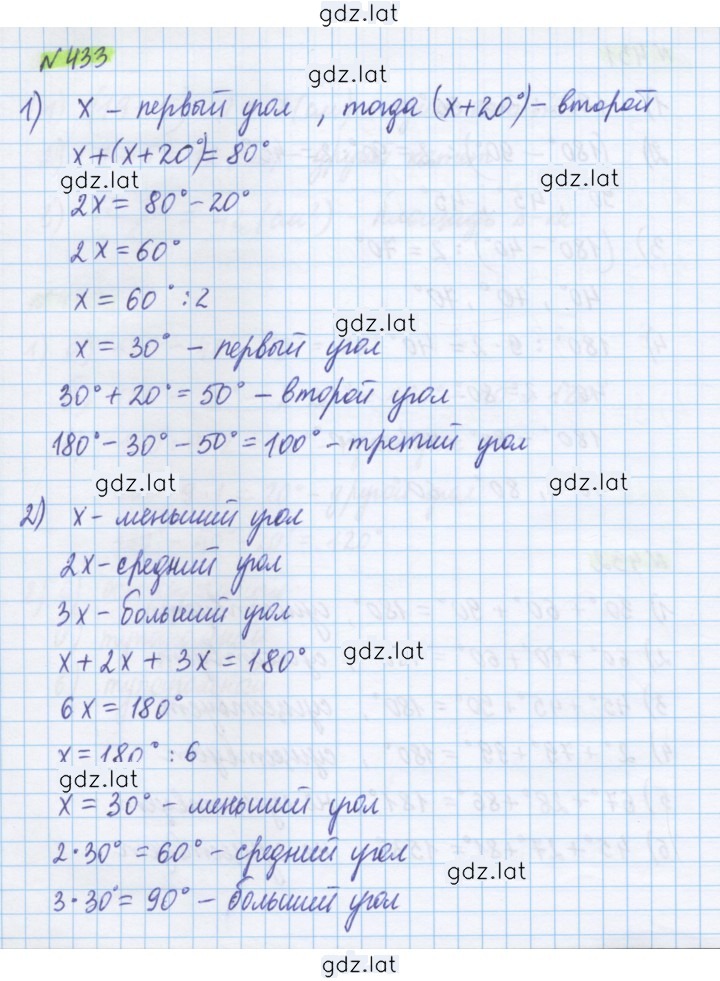 gdz.lat
№ 433
gdz.lat
1) x – первый угол, тогда (x+20°) – второй
x+(x+20°)=80°
gdz.lat gdz.lat
2x = 80°-20°
2x = 60°
x = 60° : 2
gdz.lat
x = 30° – первый угол
30° + 20° = 50° – второй угол
180° - 30° - 50° = 100° – третий угол
gdz.lat gdz.lat
2) x – меньший угол
2x – средний угол
3x – больший угол
x + 2x + 3x = 180°
gdz.lat
6x = 180°
x = 180° : 6
gdz.lat
x = 30° – меньший угол
2·30° = 60° – средний угол
gdz.lat
3·30° = 90° – больший угол
gdz.lat